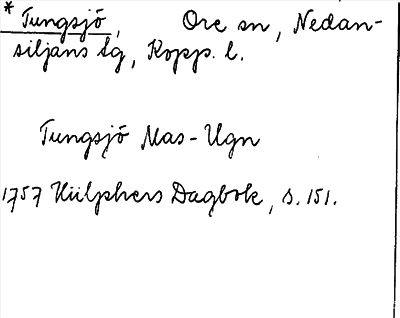 * Tungsjö, Ore sn, Nedan-
siljans tg, Kopp. l.
Tungsjö Mas-Ugn
1757 Hülphers Dagbok, s. 151.